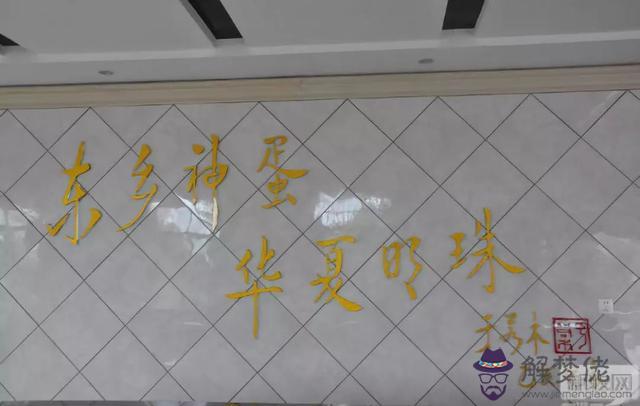 东乡神蛋
华夏明珠
解梦佬
www.jiemenglao.com